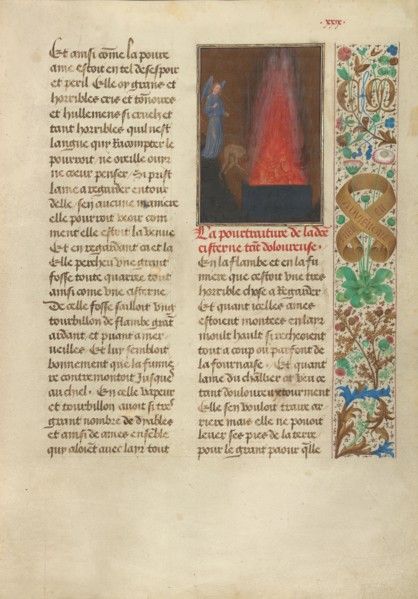 .xxx.
Et ainsi cõme la poure
ame estoit en tel desespoir
et peril Elle oy grans et
horribles cris et tõnoires
et hullemens si cruelz et
tant horribles quil nest
langue quy racompter le
pourroit ne oreille ouir
ne coeur penser Si prist
lame a regarder entour
delle sen aucune maniere
elle pourroit veoir com
ment elle estoit la venue
Et en regardant ca et la
Elle percheu une grant
fosse toute quarree tout
ainsi come une cisterne
De celle fosse sailloit ung
tourbillon de flambe grãt
ardant et puant a mer
veilles Et luy sembloit
bonnement que la fumee
contremontoit Jusques
au chiel En celle vapeur
et tourbillon avoit si tres
grant nombre de dyables
et ainsi de ames ensẽble
quy aloiẽt avec layr tout
La pourtraiture de la dce
cisterne trãt doloureuse
En la flambe et en la fu
miere que cestoit une tres
horrible chose a Regarder
Et quant icelles ames
estoient montees en layr
moult hault si recheoient
tout a coup ou parfont de
la fournaise Et quant
lame du chłlier et veu ce
tant douloureux tourment
Elle sen vouloit traire ar
riere mais elle ne pouoit
lever ses pies de la terre
pour le grant paour qlle